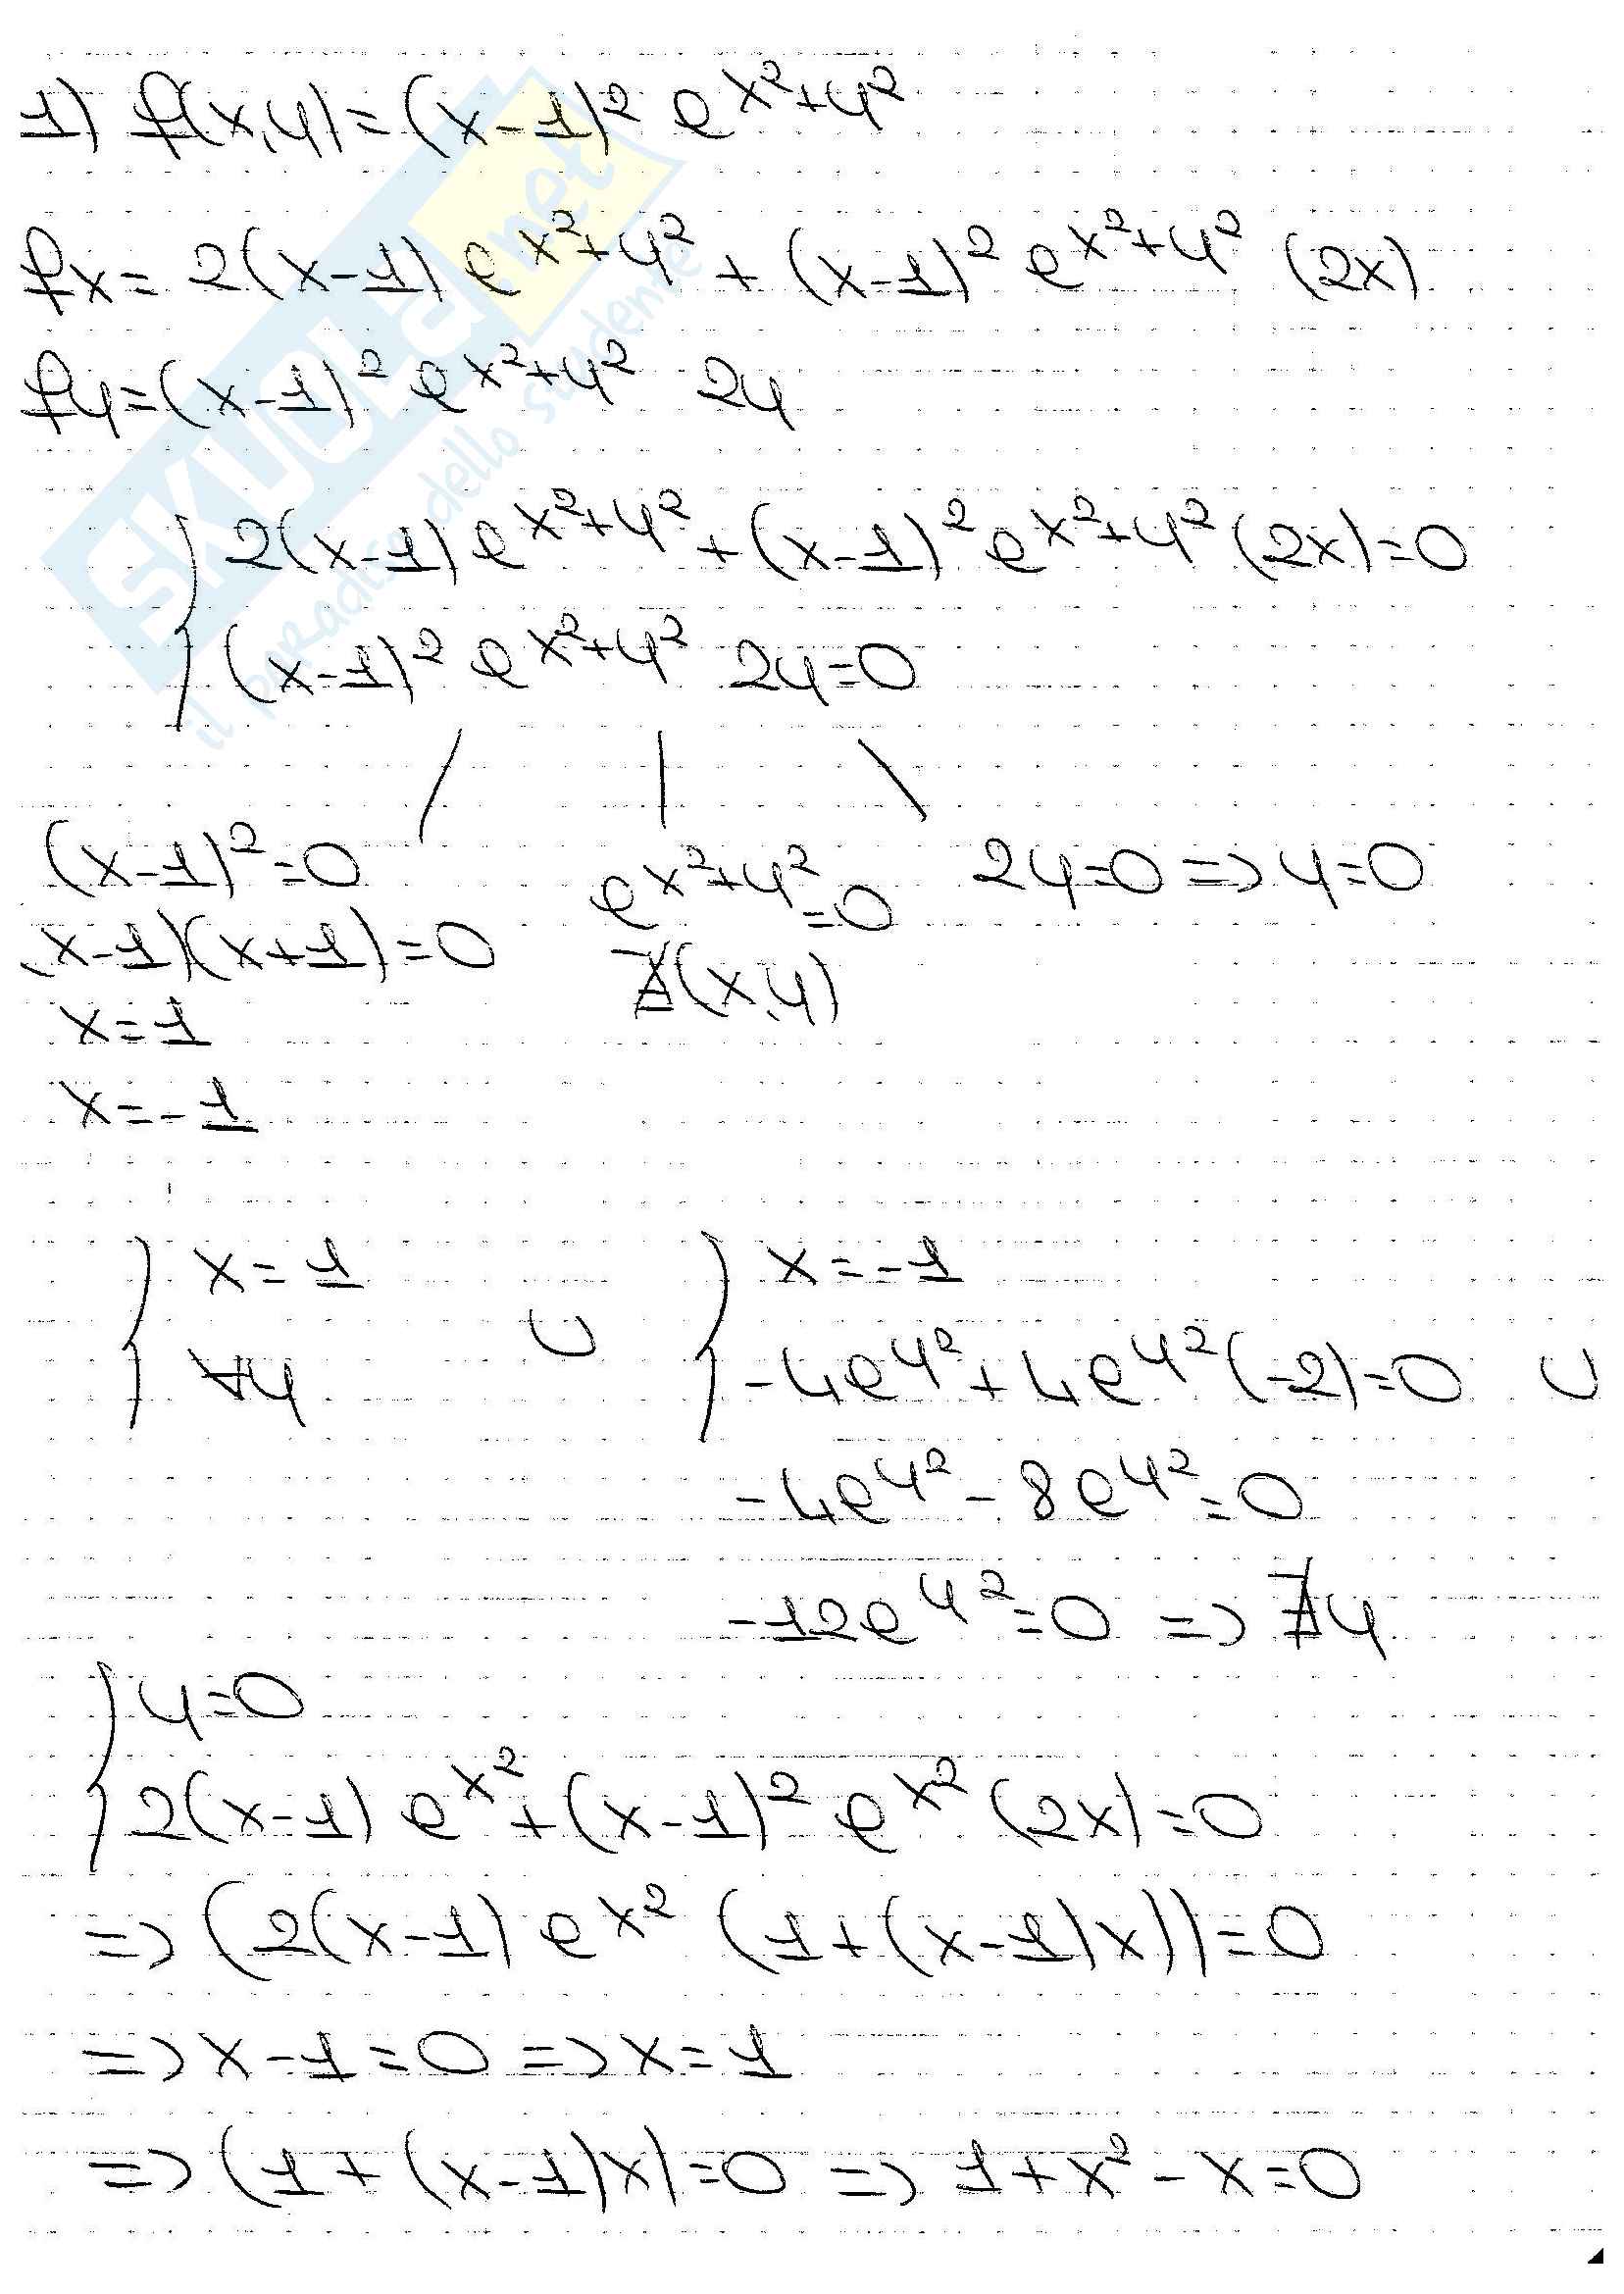 1) f(x,y)=(x-1)² e^x²+y²
fx=2(x-1) e^x²+y² + (x-1)² e^x²+y² (2x)
fy=(x-1)² e^x²+y² 2y
{ 2(x-1) e^x²+y² + (x-1)² e^x²+y² (2x)=0
(x-1)² e^x²+y² 2y=0
/ | \
(x-1)²=0 e^x²+y²=0 2y=0 => y=0
(x-1)(x+1)=0 ∄(x,y)
x=1
x=-1
{ x=1 ∪ { x=-1
∀y -4e^y²+4e^y²(-2)=0 ∪
-4e^y²-8e^y²=0
-12e^y²=0 => ∄y
{ y=0
2(x-1) e^x²+(x-1)² e^x² (2x)=0
=> (2(x-1) e^x² (1+(x-1)x))=0
=> x-1=0 => x=1
=> (1+(x-1)x)=0 => 1+x²-x=0
SKUOLA.net
il paradiso dello studente